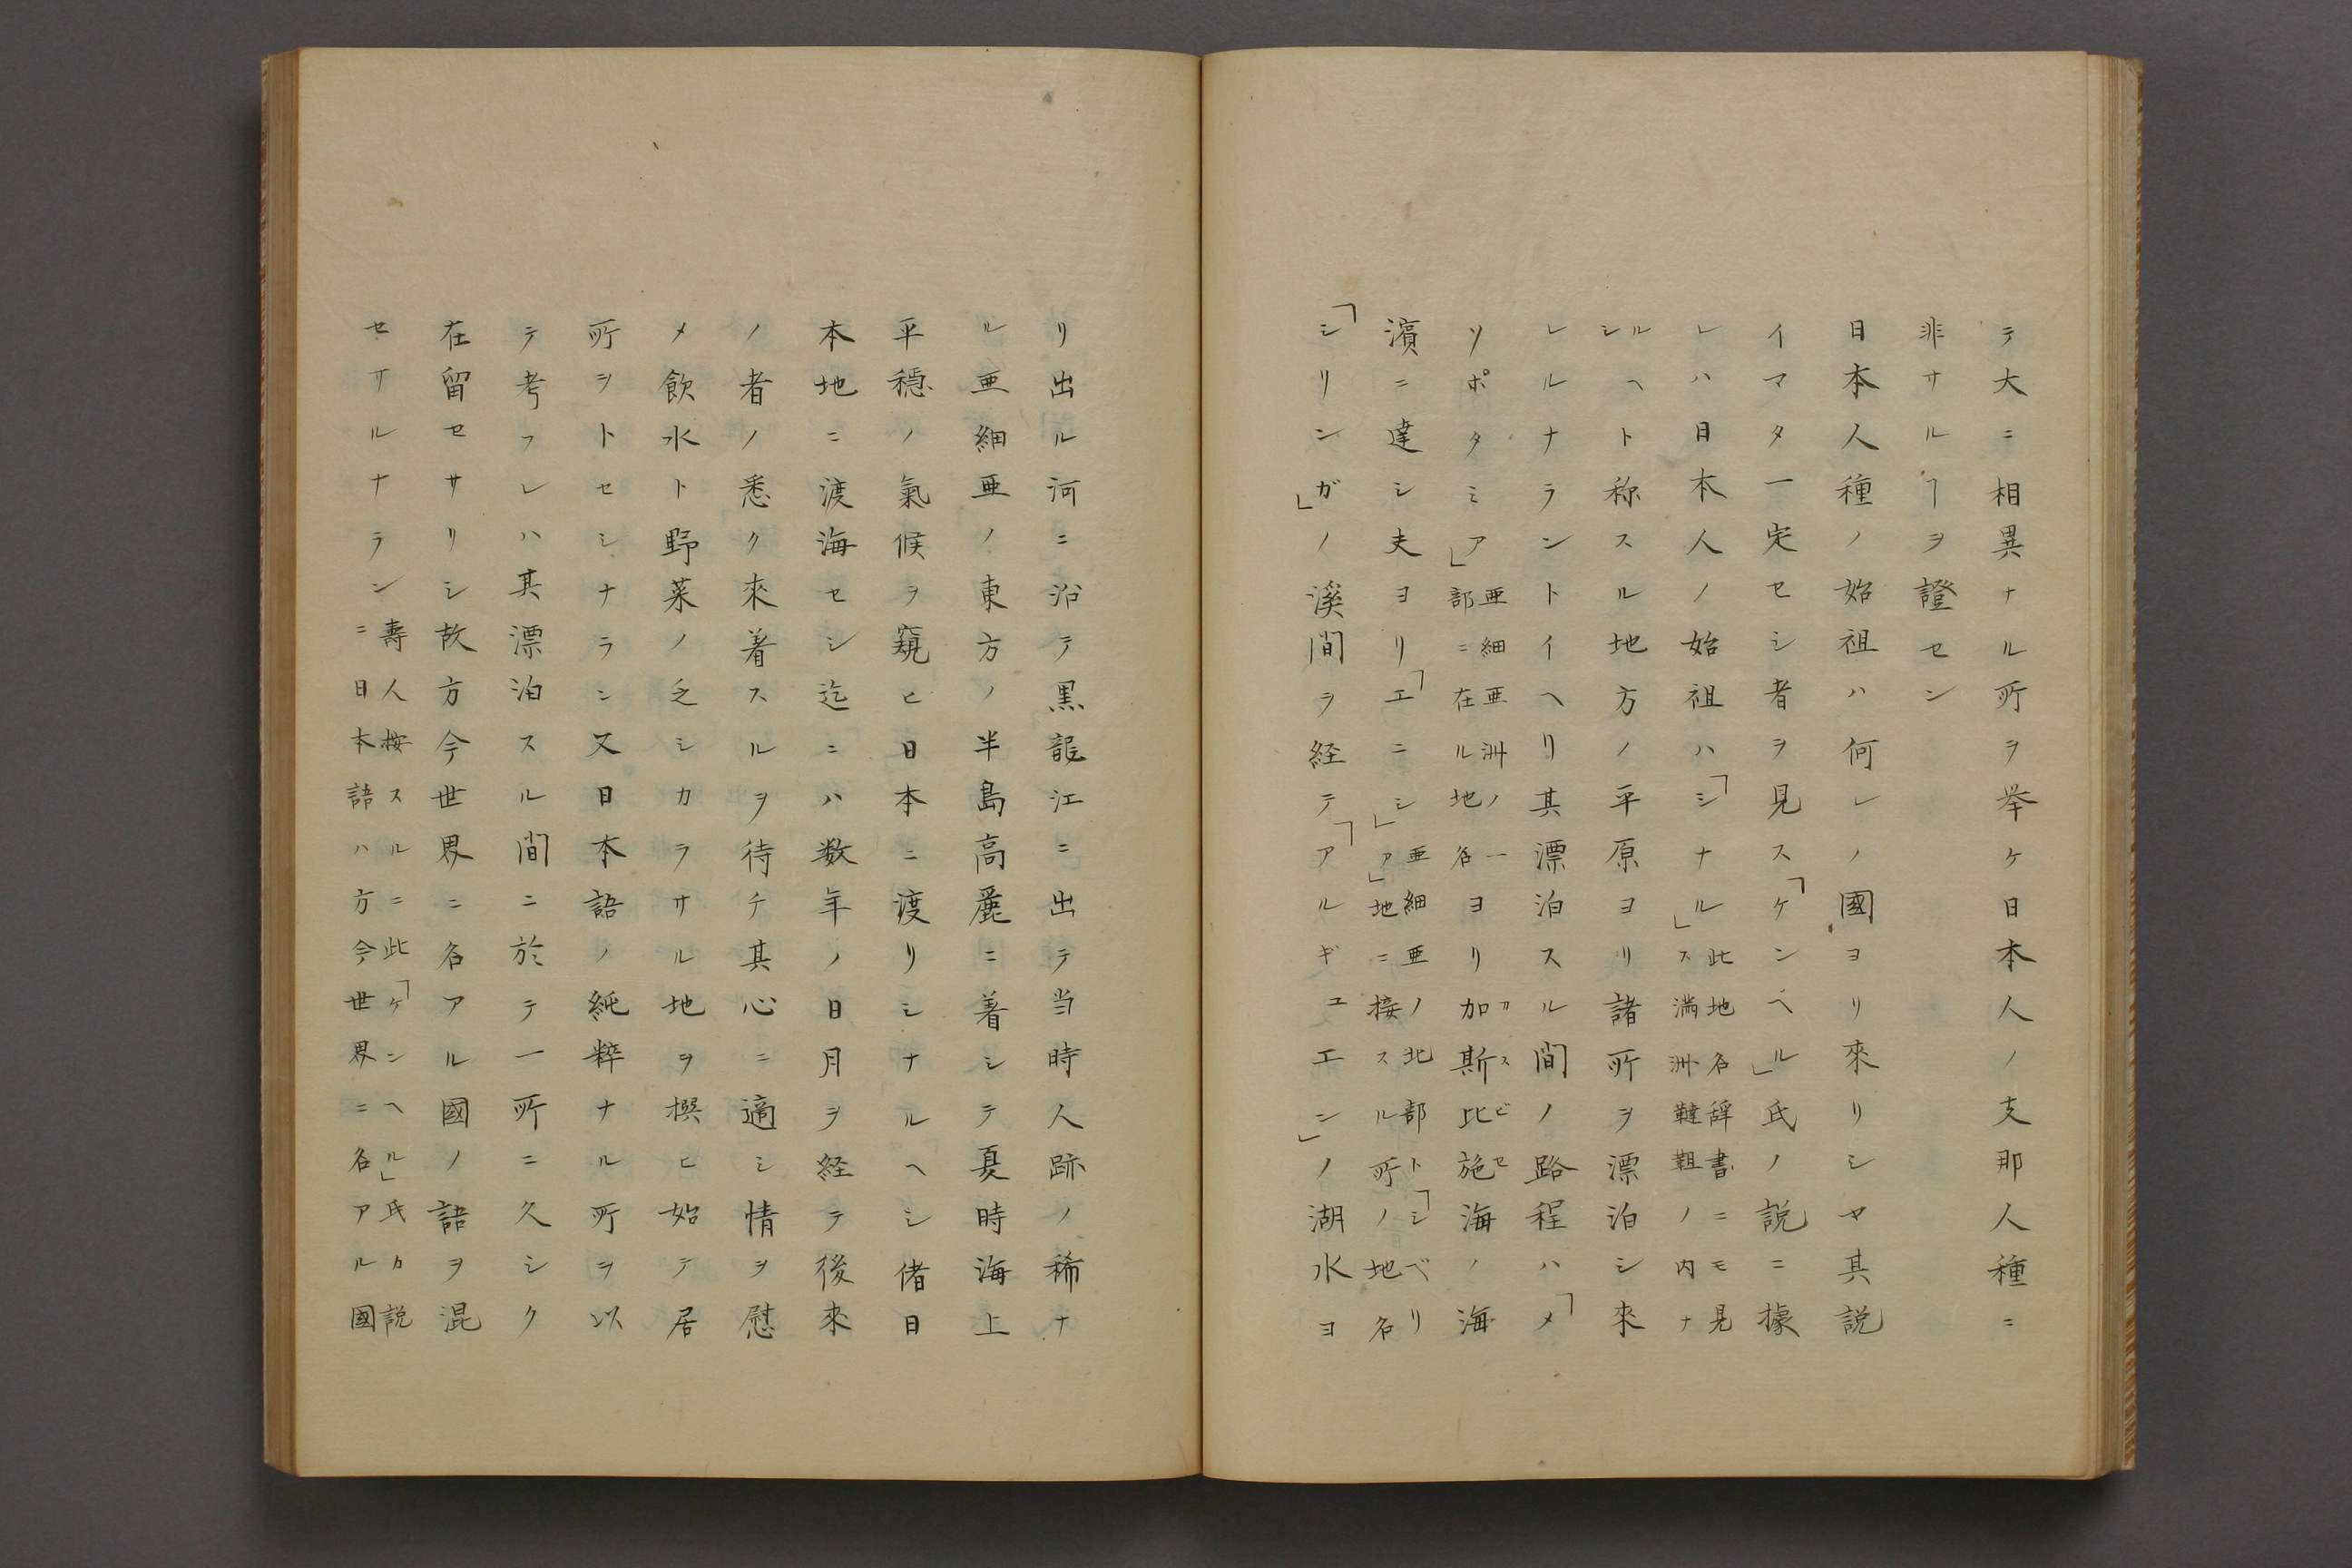 テ大ニ相異ナル所ヲ挙ケ日本人ノ支那人種ニ
非サルヿヲ證セン
日本人種ノ始祖ハ何レノ國ヨリ來リシヤ其説
イマタ一定セシ者ヲ見ス「ケンヘル」氏ノ説ニ據
レハ日本人ノ始祖ハ「シナル」此地名辞書ニモ見
ス満洲韃靼ノ内ナ
ルヘ
シト称スル地方ノ平原ヨリ諸所ヲ漂泊シ來
レルナラントイヘリ其漂泊スル間ノ路程ハ「メ
ソポタミア」亜細亜洲ノ一
部ニ在ル地名ヨリ加斯比施海ノ海
カスビセ
濱ニ達シ夫ヨリ「エニシ」亜細亜ノ北部ト「シベリ
ア」地ニ接スル所ノ地名
「シリンガ」ノ溪間ヲ経テ「アルギユエン」ノ湖水ヨ
リ出ル河ニ沿テ黒龍江ニ出テ当時人跡ノ稀ナ
ル亜細亜ノ東方ノ半島高麗ニ着シテ夏時海上
平穏ノ氣候ヲ窺ヒ日本ニ渡リシナルヘシ偖日
本地ニ渡海セシ迄ニハ数年ノ日月ヲ経テ後來
ノ者ノ悉ク來着スルヲ待チ其心ニ適シ情ヲ慰
メ飲水ト野菜ノ乏シカラサル地ヲ撰ヒ始テ居
所ヲトセシナラン又日本語ノ純粹ナル所ヲ以
テ考フレハ其漂泊スル間ニ於テ一所ニ久シク
在留セサリシ故方今世界ニ名アル國ノ語ヲ混
セサルナラン壽人按スルニ此「ケンヘル」氏カ説
ニ日本語ハ方今世界ニ名アル國